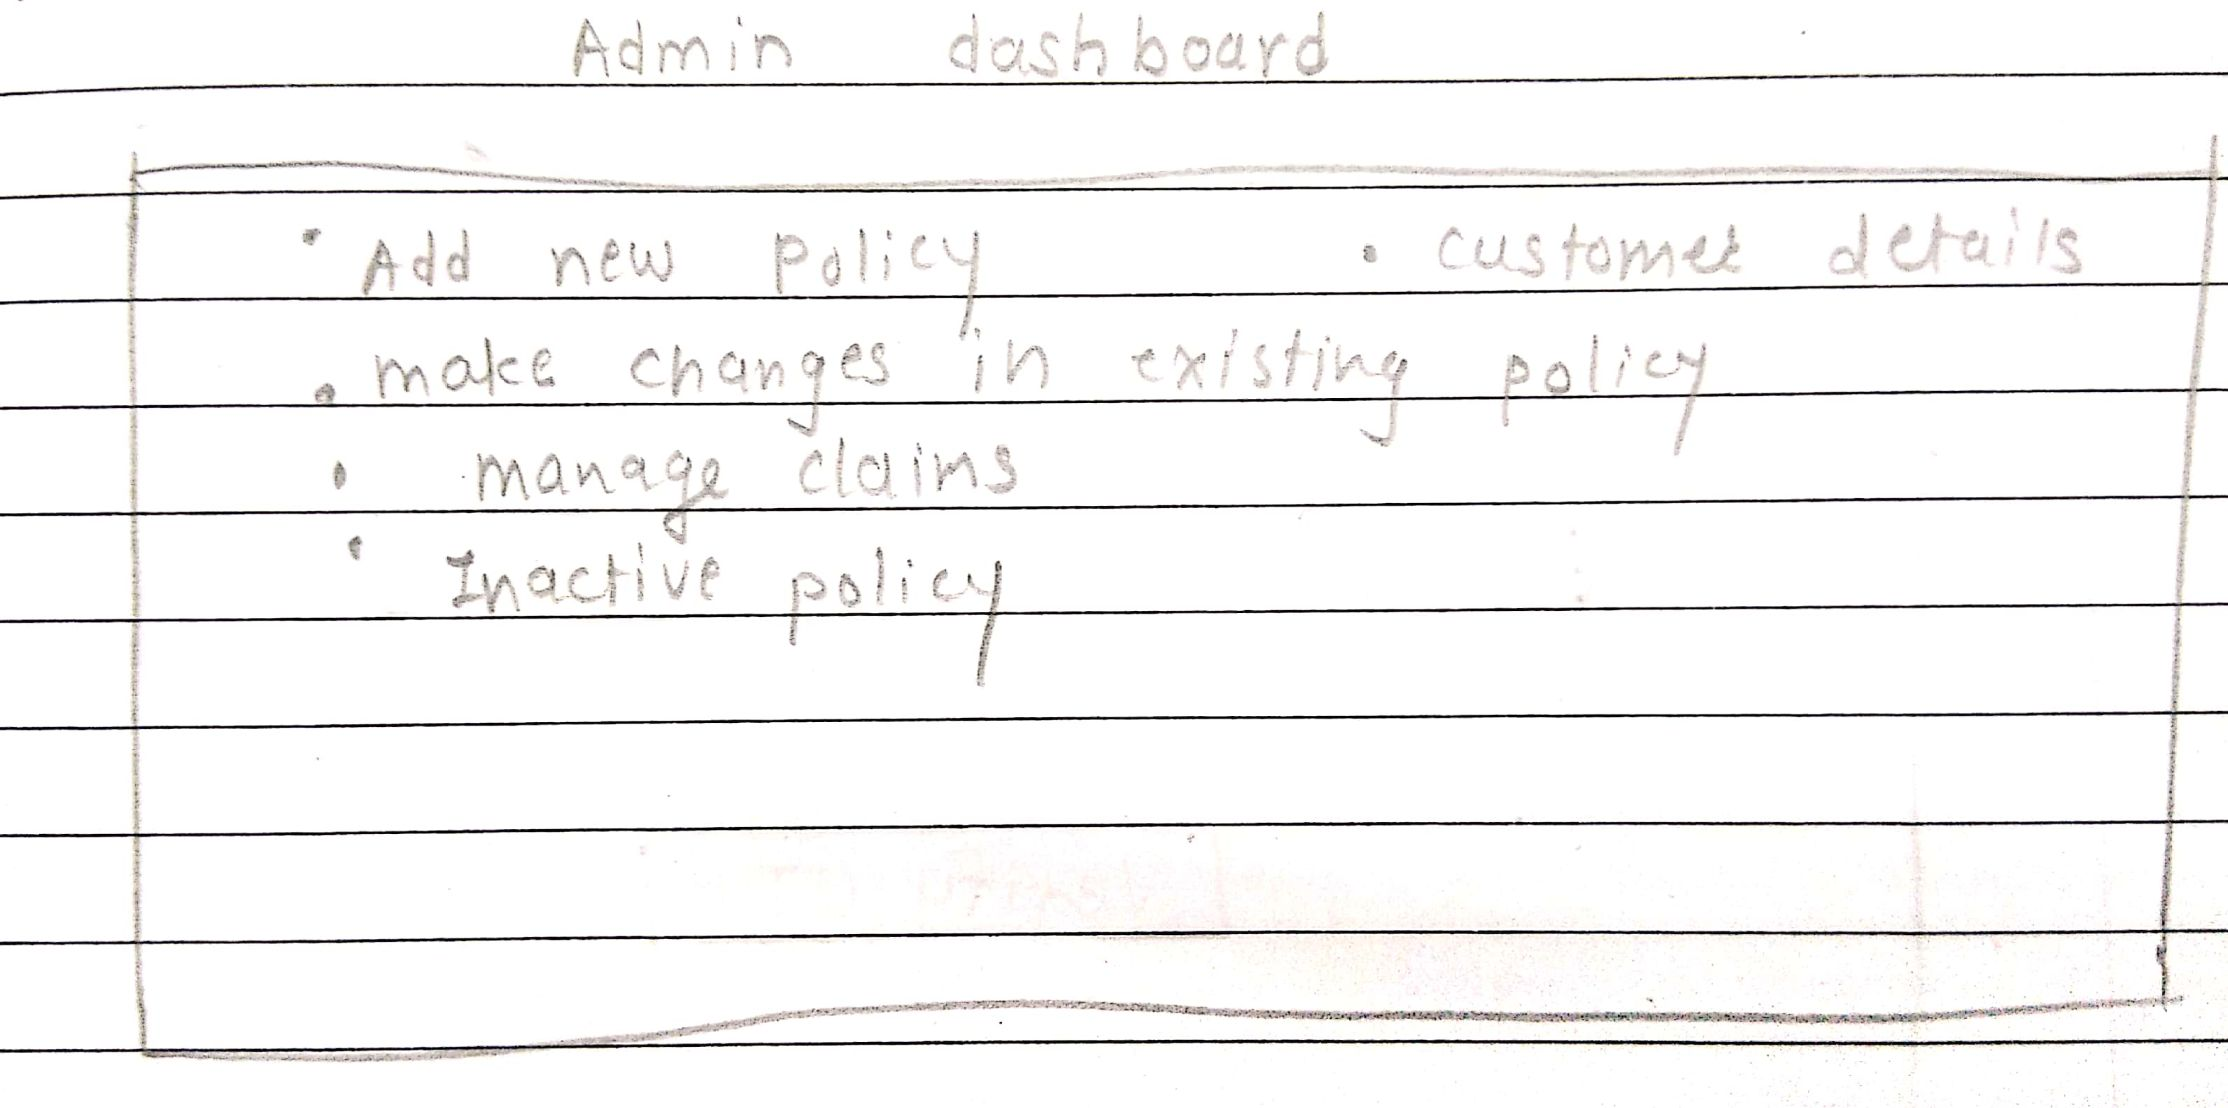 Admin dashboard
• Add new policy • customer details
• make changes in existing policy
• manage claims
• Inactive policy